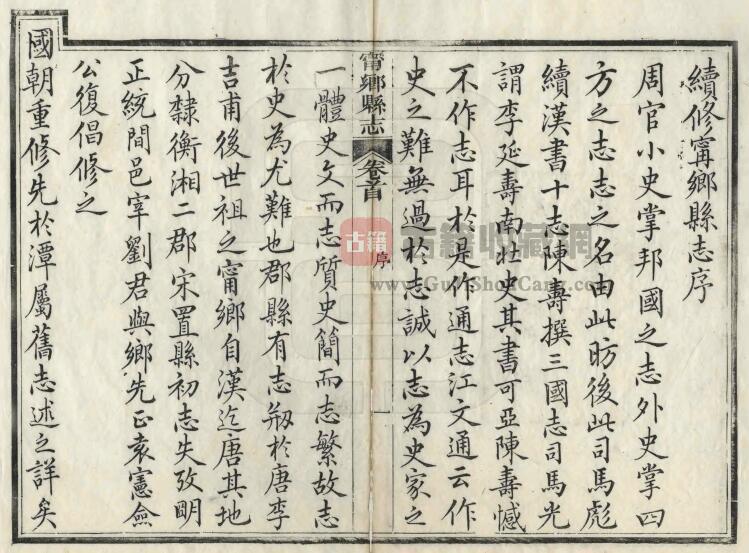 續修甯鄉縣志序
周官小史掌邦國之志外史掌四
方之志志之名由此昉後此司馬彪
續漢書十志陳壽撰三國志司馬光
謂李延壽南北史其書可亞陳壽憾
不作志耳於是作通志江文通云作
史之難無過於志誠以志為史家之
甯鄉縣志
卷首
序
一體史文而志質史簡而志繁故志
於史為尤難也郡縣有志剏於唐李
吉甫後世祖之甯鄉自漢迄唐其地
分隸衡湘二郡宋置縣初志失攷明
正統間邑宰劉君與鄉先正袁憲僉
公復倡修之
國朝重修先於潭屬舊志述之詳矣
古籍
古籍收藏網
www.GujiShouCang.com